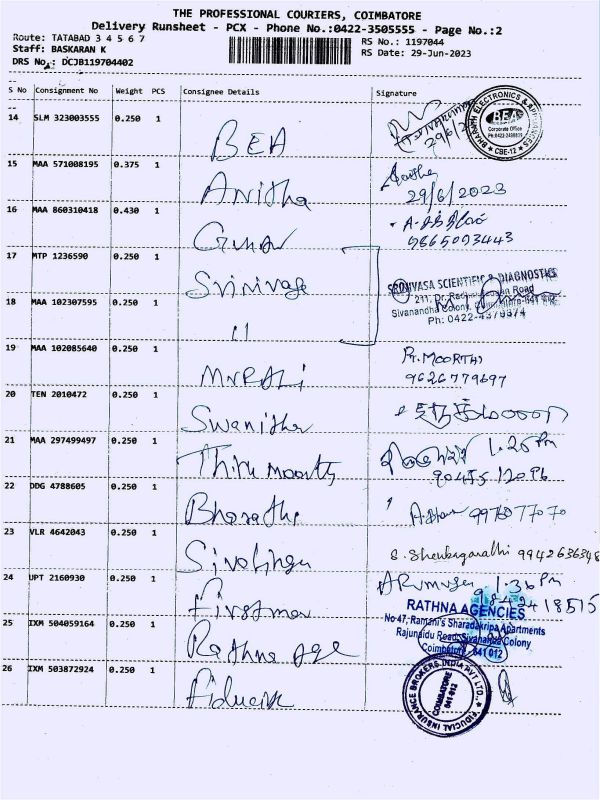 THE PROFESSIONAL COURIERS, COIMBATORE
Delivery Runsheet - PCX - Phone No.:0422-3505555 - Page No.:2
Route: TATABAD 3 4 5 6 7
RS No.: 1197044
Staff: BASKARAN K
RS Date: 29-Jun-2023
DRS No.: DCJB119704402
S No Consignment No Weight PCS Consignee Details Signature
14 SLM 323003555 0.250 1 BEA 29/6/2
BHARATH ELECTRONICS & APPLIANCES
BEA
Corporate Office
CBE-12
15 MAA 571008195 0.375 1 Anitha
29/6/2023
16 MAA 860310418 0.430 1
9865093443
17 MTP 1236590 0.250 1 Srinivasa
SRINIVASA SCIENTIFIC & DIAGNOSTICS
211, Dr. Road
Sivanandha Colony,
Ph: 0422-4379874
18 MAA 102307595 0.250 1 11
19 MAA 102085640 0.250 1 MURALi
R. MOORTHI
9626779697
20 TEN 2010472 0.250 1 Swanitha
21 MAA 297499497 0.250 1 Thiru moorthy 1.25 Pm
22 DDG 4788605 0.250 1 Bharathi 9976077070
23 VLR 4642043 0.250 1 S. Shenbagavalhi 9942636348
24 UPT 2160930 0.250 1 ARumugam 1.30 Pm
9842418515
RATHNA AGENCIES
No 47, Ramani's Sharadakripa Apartments
Rajunaidu Road, Sivananda Colony
Coimbatore - 641 012
25 IXM 504059164 0.250 1 Rathna age
26 IXM 503872924 0.250 1
FIDUCIAL INSURANCE BROKERS INDIA PVT LTD.,
COIMBATORE
641 012